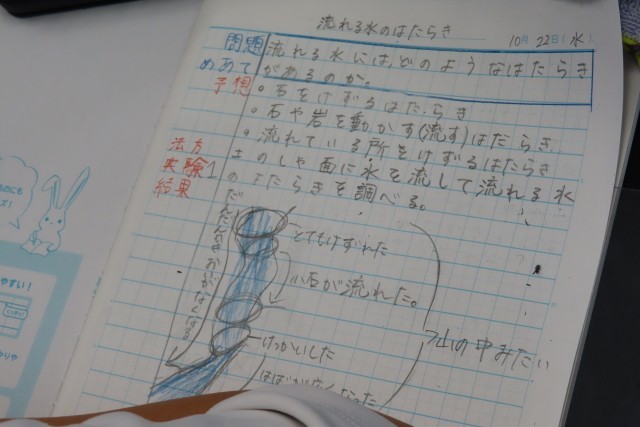 流れる水のはたらき
10月 22日(水)
問題 流れる水には、どのようなはたらき
めあて があるのか。
予想 ・石をけずるはたらき
・石や岩を動かす(流す)はたらき
・流れている所をけずるはたらき
方法
実験1 のしゃ面に水を流して流れる水
結果 のはたらきを調べる。
とてもけずれた
小石が流れた。
けっかいした
はばが
山の中みたい
やすい!